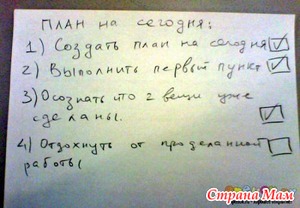 ПЛАН НА СЕГОДНЯ:
1) Создать план на сегодня
2) Выполнить первый пункт
3) Осознать что 2 вещи уже
сделаны.
4) Отдохнуть от проделанной
работы
Страна Мам